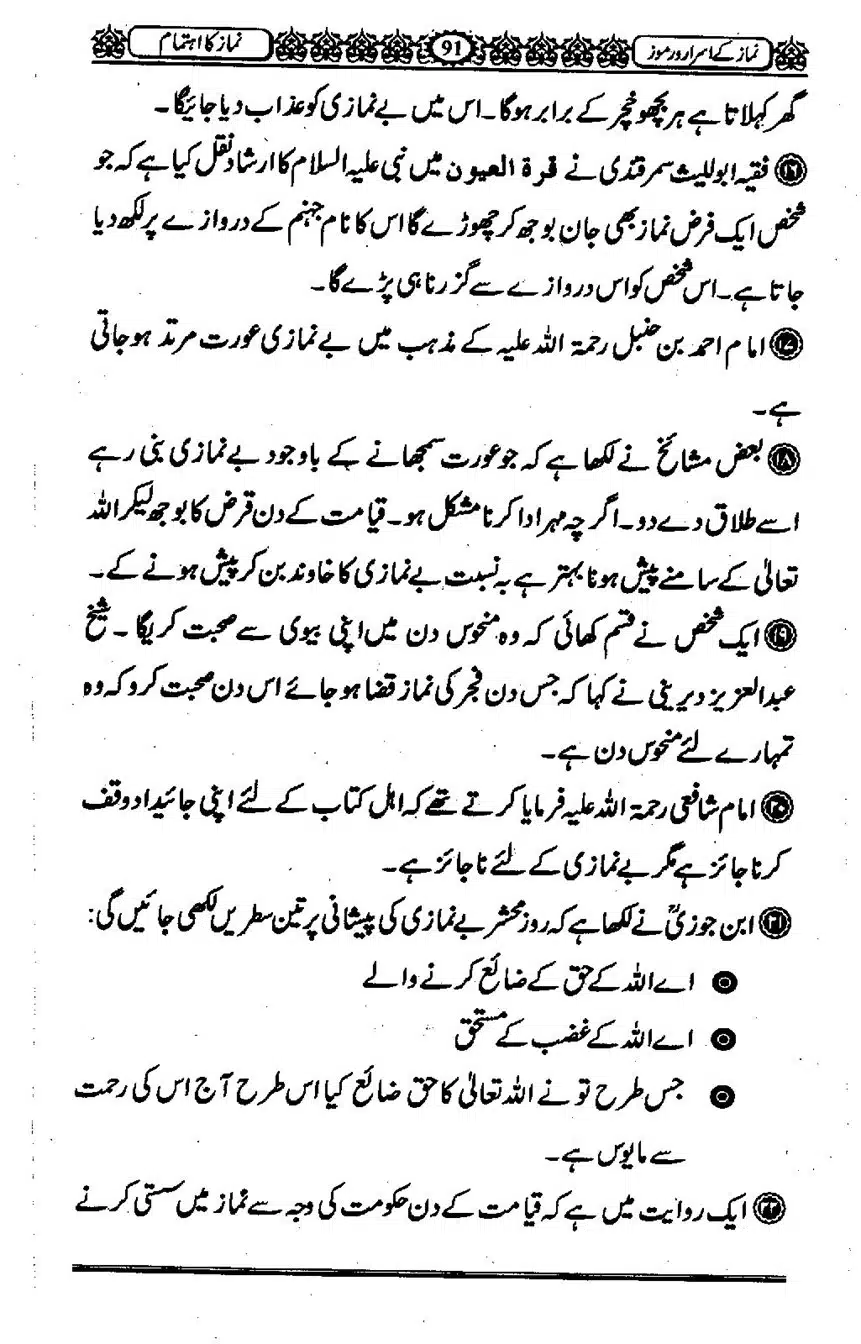 نماز کے اسرار و رموز 91 نماز کا اہتمام
گھر کہلاتا ہے ہر بچھو خچر کے برابر ہوگا۔ اس میں بے نمازی کو عذاب دیا جائیگا۔
۱۶ فقیہ ابواللیث سمرقندی نے قرة العیون میں نبی علیہ السلام کا ارشاد نقل کیا ہے کہ جو
شخص ایک فرض نماز بھی جان بوجھ کر چھوڑے گا اس کا نام جہنم کے دروازے پر لکھ دیا
جاتا ہے۔ اس شخص کو اس دروازے سے گزرنا ہی پڑے گا۔
۱۷ امام احمد بن حنبل رحمۃ اللہ علیہ کے مذہب میں بے نمازی عورت مرتد ہو جاتی
ہے۔
۱۸ بعض مشائخ نے لکھا ہے کہ جو عورت سمجھانے کے باوجود بے نمازی بنی رہے
اسے طلاق دے دو۔ اگرچہ مہر ادا کرنا مشکل ہو۔ قیامت کے دن قرض کا بوجھ لیکر اللہ
تعالیٰ کے سامنے پیش ہونا بہتر ہے بہ نسبت بے نمازی کا خاوند بن کر پیش ہونے کے۔
۱۹ ایک شخص نے قسم کھائی کہ وہ منحوس دن میں اپنی بیوی سے صحبت کریگا۔ شیخ
عبدالعزیز دیرینی نے کہا کہ جس دن فجر کی نماز قضا ہو جائے اس دن صحبت کرو کہ وہ
تمہارے لئے منحوس دن ہے۔
۲۰ امام شافعی رحمۃ اللہ علیہ فرمایا کرتے تھے کہ اہل کتاب کے لئے اپنی جائیداد وقف
کرنا جائز ہے مگر بے نمازی کے لئے ناجائز ہے۔
۲۱ ابن جوزیؒ نے لکھا ہے کہ روز محشر بے نمازی کی پیشانی پر تین سطریں لکھی جائیں گی:
اے اللہ کے حق کے ضائع کرنے والے
اے اللہ کے غضب کے مستحق
جس طرح تو نے اللہ تعالیٰ کا حق ضائع کیا اس طرح آج اس کی رحمت
سے مایوس ہے۔
۲۲ ایک روایت میں ہے کہ قیامت کے دن حکومت کی وجہ سے نماز میں سستی کرنے